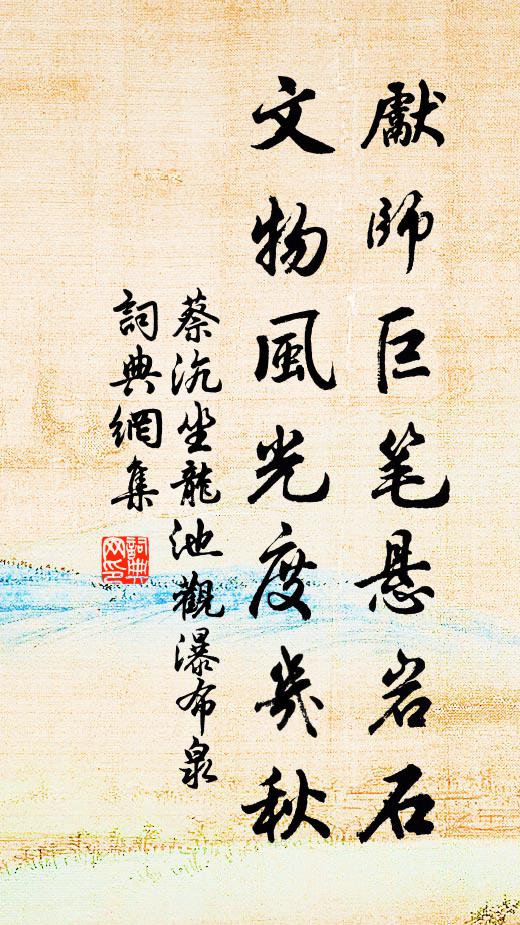 獻師巨笔悬岩石
文物風光度幾秋
蔡沉坐龍池觀瀑布泉
詞典網集
詞典网印